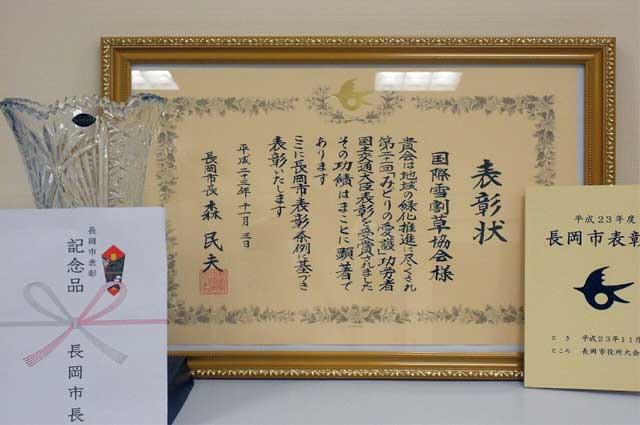 表彰状
国際雪割草協会様
貴会は地域の緑化推進に尽くされ
第二十二回「みどりの愛護」功労者
国土交通大臣表彰を受賞されました
その功績はまことに顕著で
あります
ここに長岡市表彰条例に基づき
表彰いたします
平成二十三年十一月三日
長岡市長 森民夫
長岡市表彰
記念品
長岡市長
平成23年度
長岡市表彰
とき 平成23年11月
ところ 長岡市役所大会